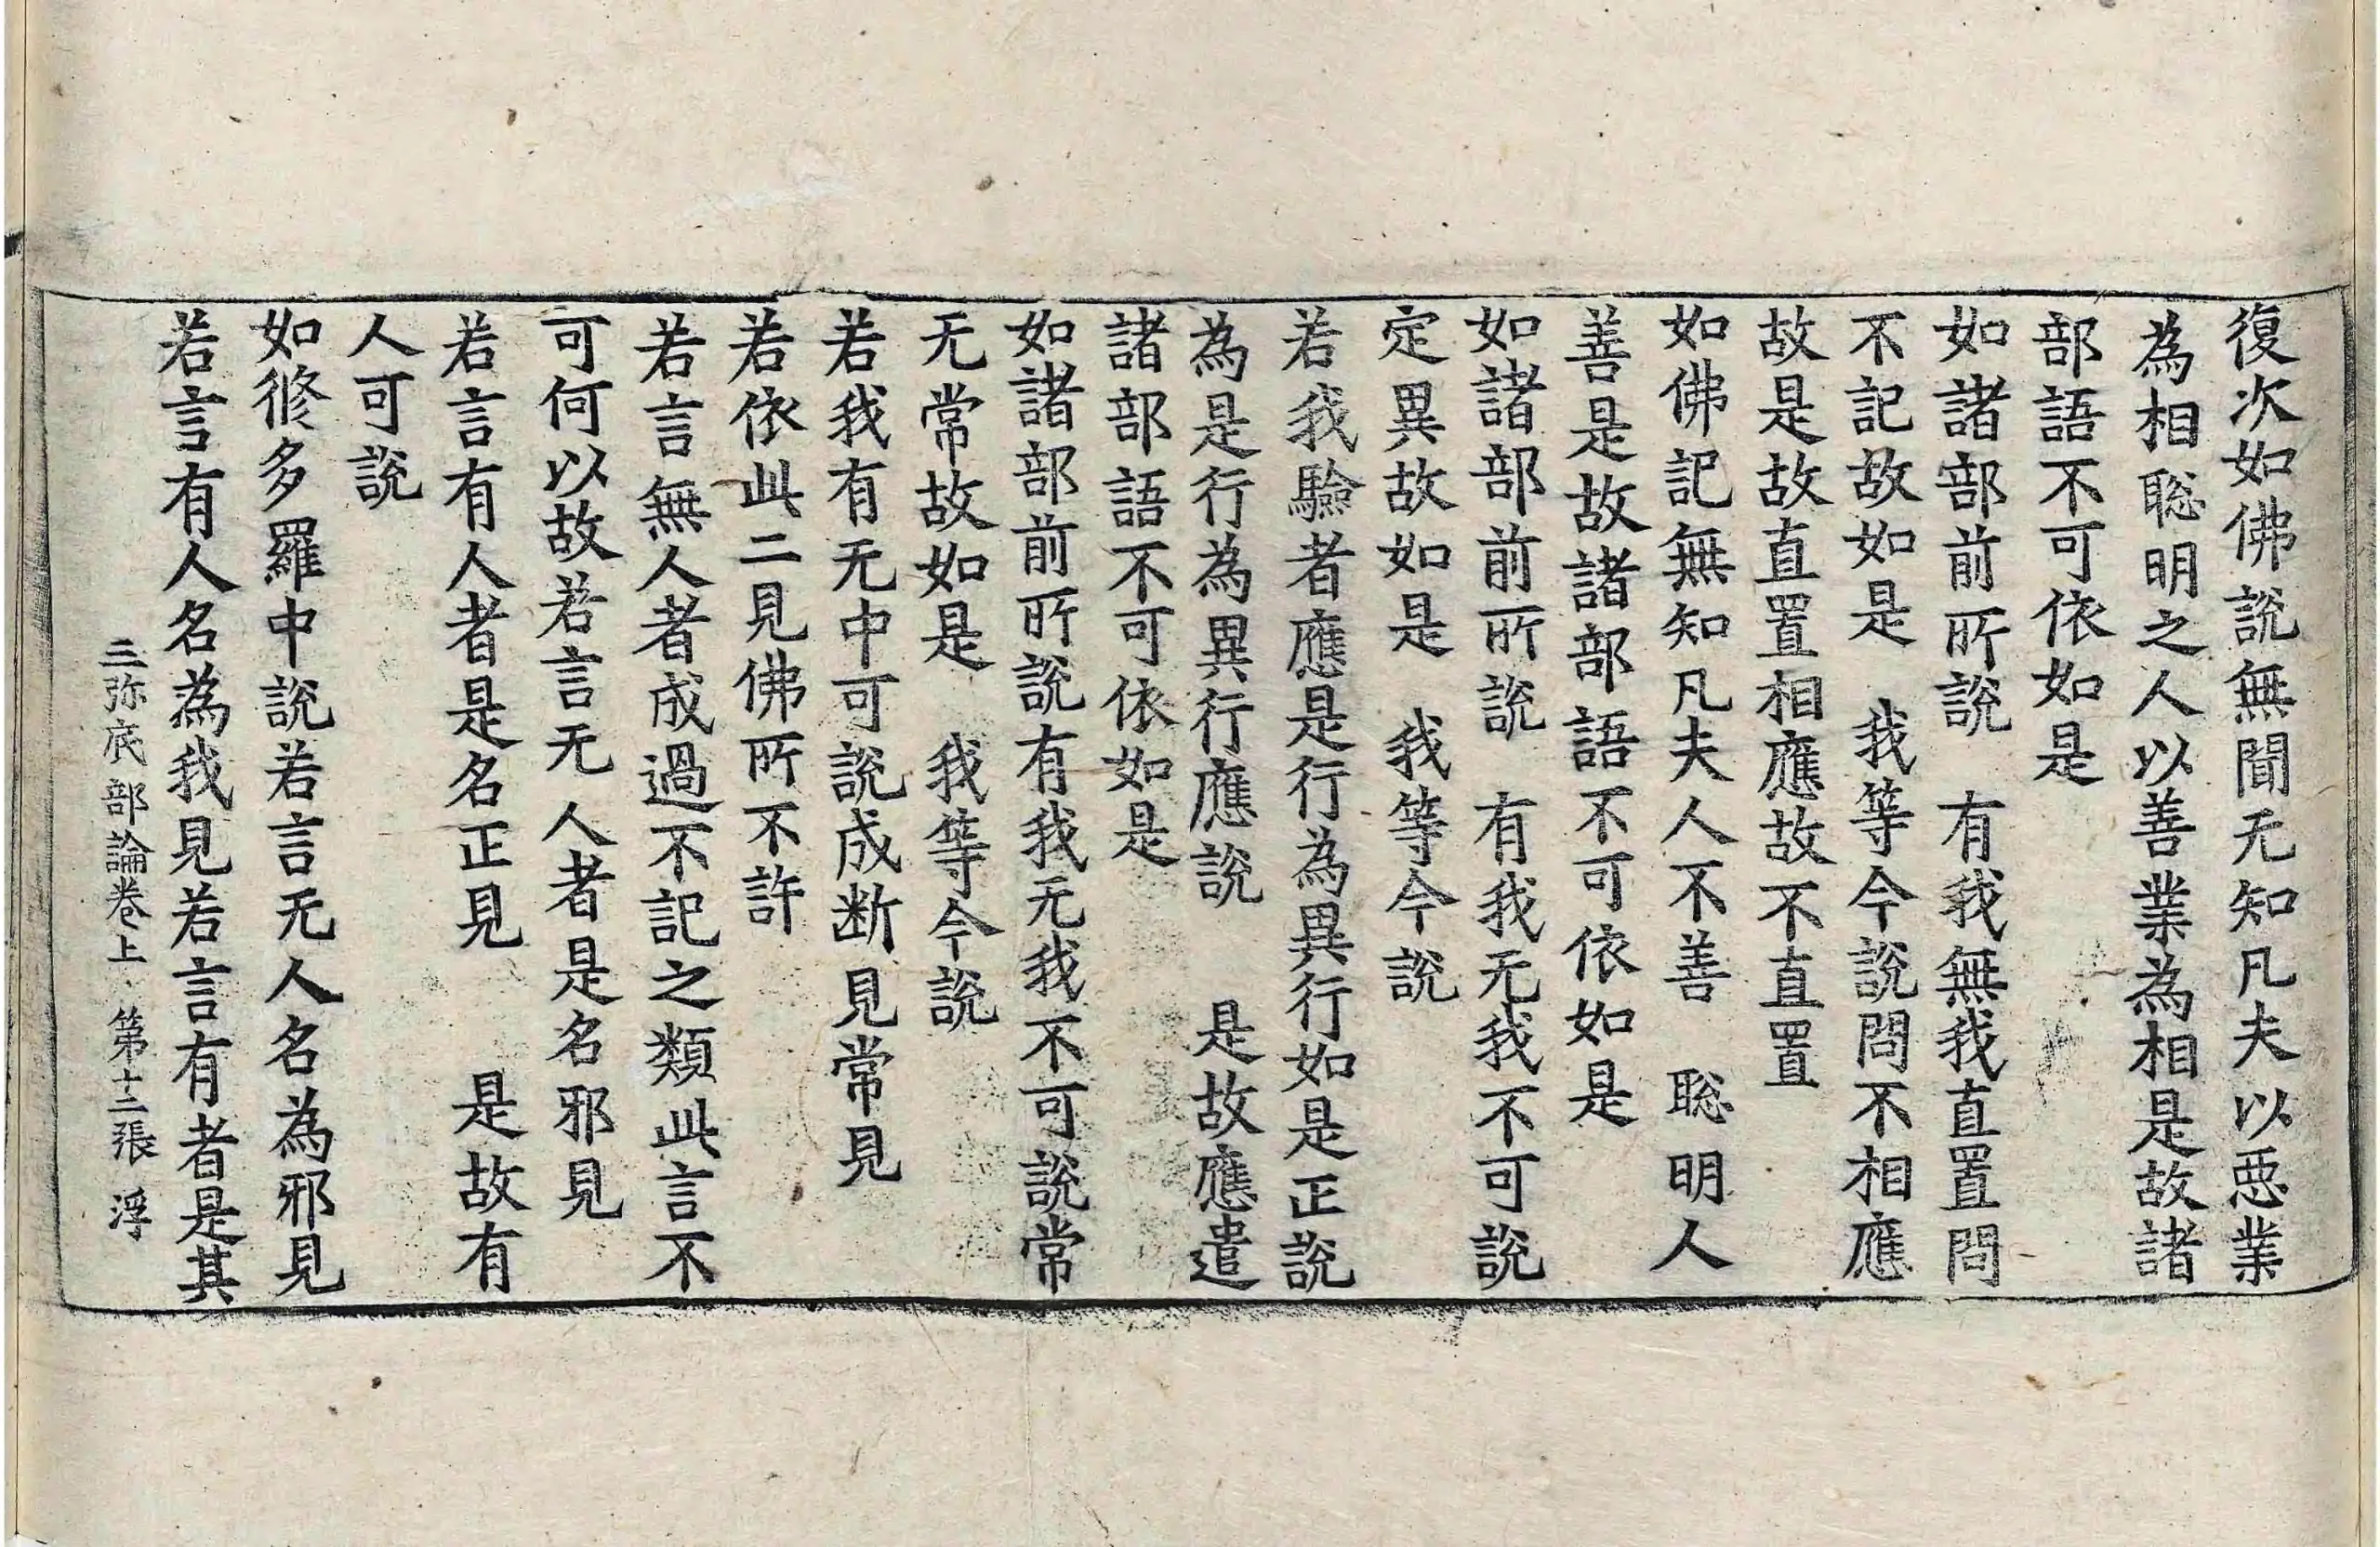 復次如佛說無聞无知凡夫以惡業
為相聡明之人以善業為相是故諸
部語不可依如是
如諸部前所說　有我無我直置問
不記故如是　我等今說問不相應
故是故直置相應故不直置
如佛記無知凡夫人不善　聡明人
善是故諸部語不可依如是
如諸部前所說　有我无我不可說
定異故如是　我等今說
若我驗者應是行為異行如是正說
為是行為異行應說　是故應遣
諸部語不可依如是
如諸部前所說有我无我不可說常
无常故如是　我等今說
若我有无中可說成断見常見
若依此二見佛所不許
若言無人者成過不記之類此言不
可何以故若言无人者是名邪見
若言有人者是名正見　是故有
人可說
如修多羅中說若言无人名為邪見
若言有人名為我見若言有者是其
三弥底部論卷上　第十二張　浮